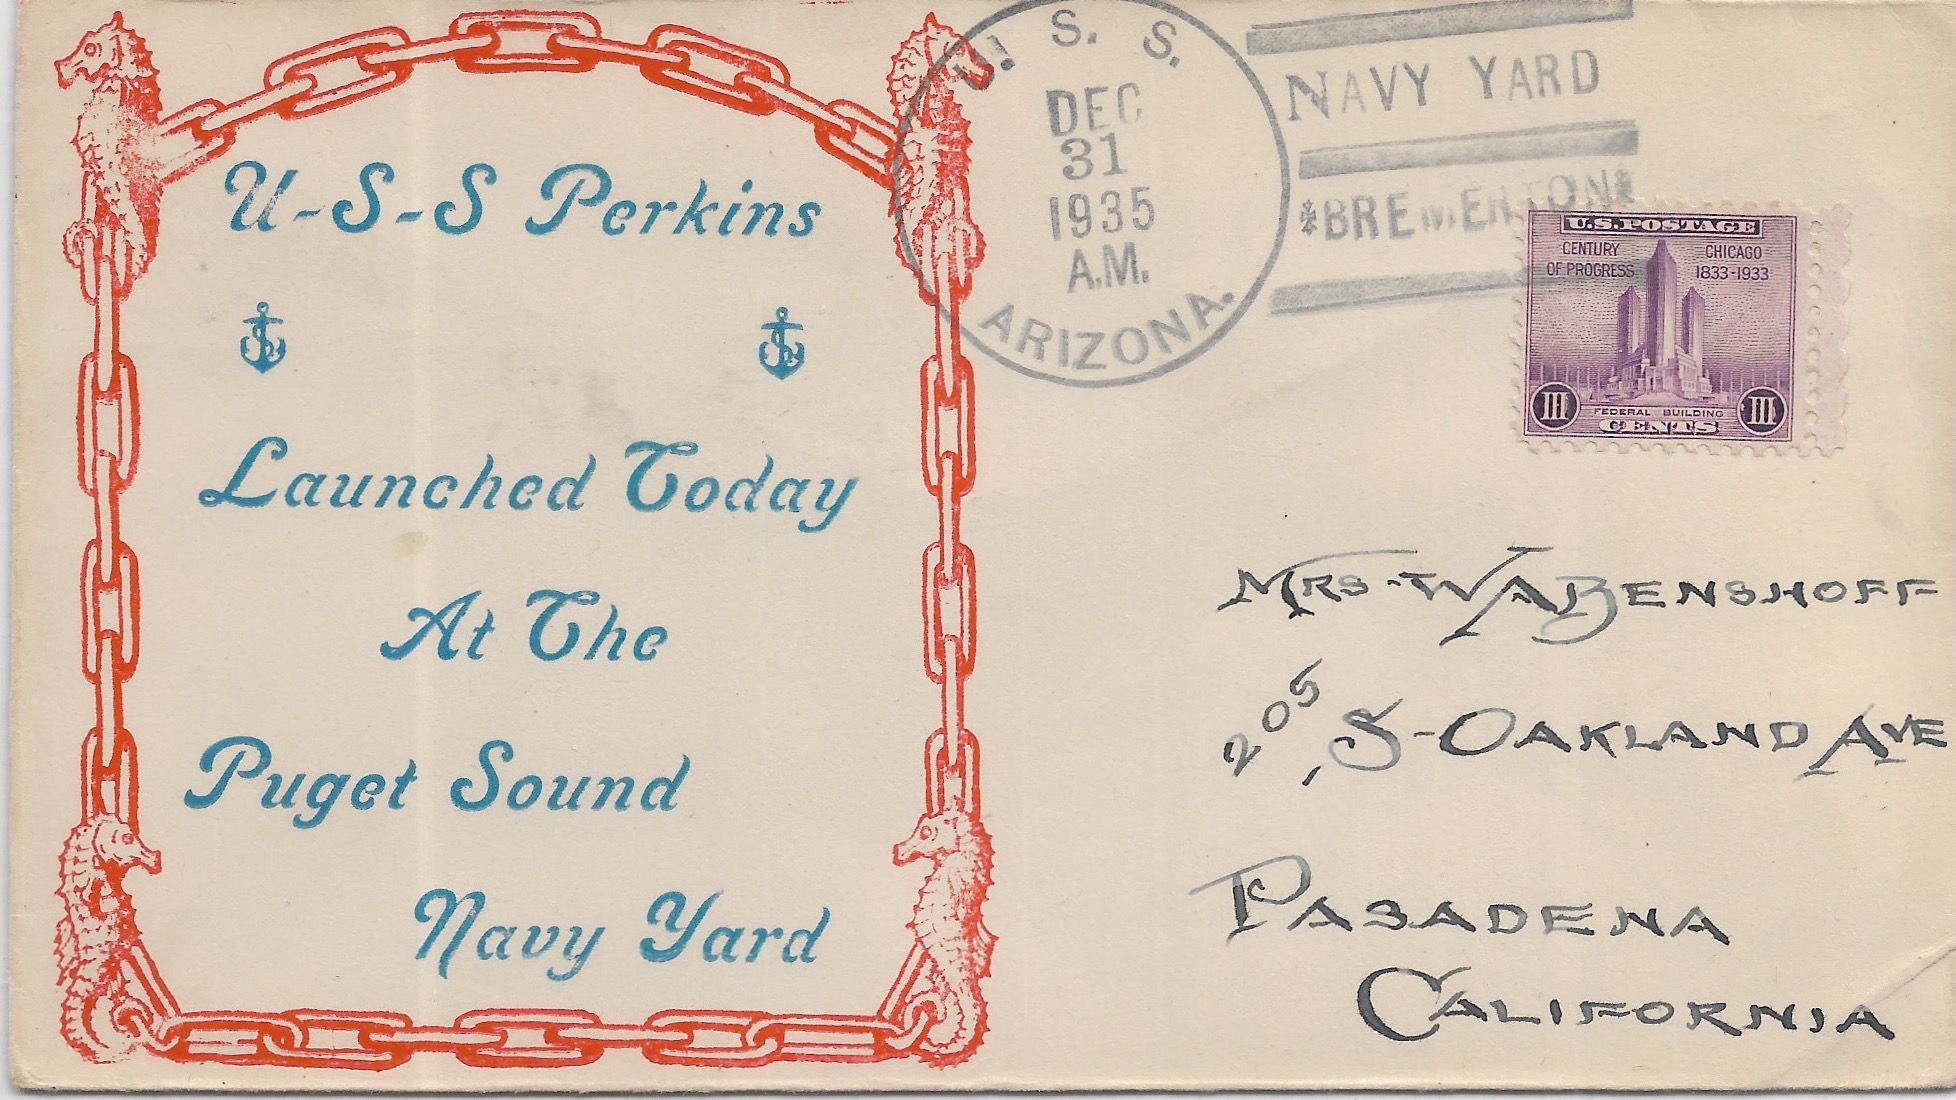 U-S-S Perkins
Launched Today
At The
Puget Sound
Navy Yard
U. S. S.
DEC
31
1935
A.M.
ARIZONA.
NAVY YARD
*BREMERTON*
U.S. POSTAGE
CENTURY OF PROGRESS
CHICAGO 1833-1933
III
FEDERAL BUILDING
III
CENTS
MRS-WABENSHOFF
205, S-OAKLAND AVE
PASADENA
CALIFORNIA